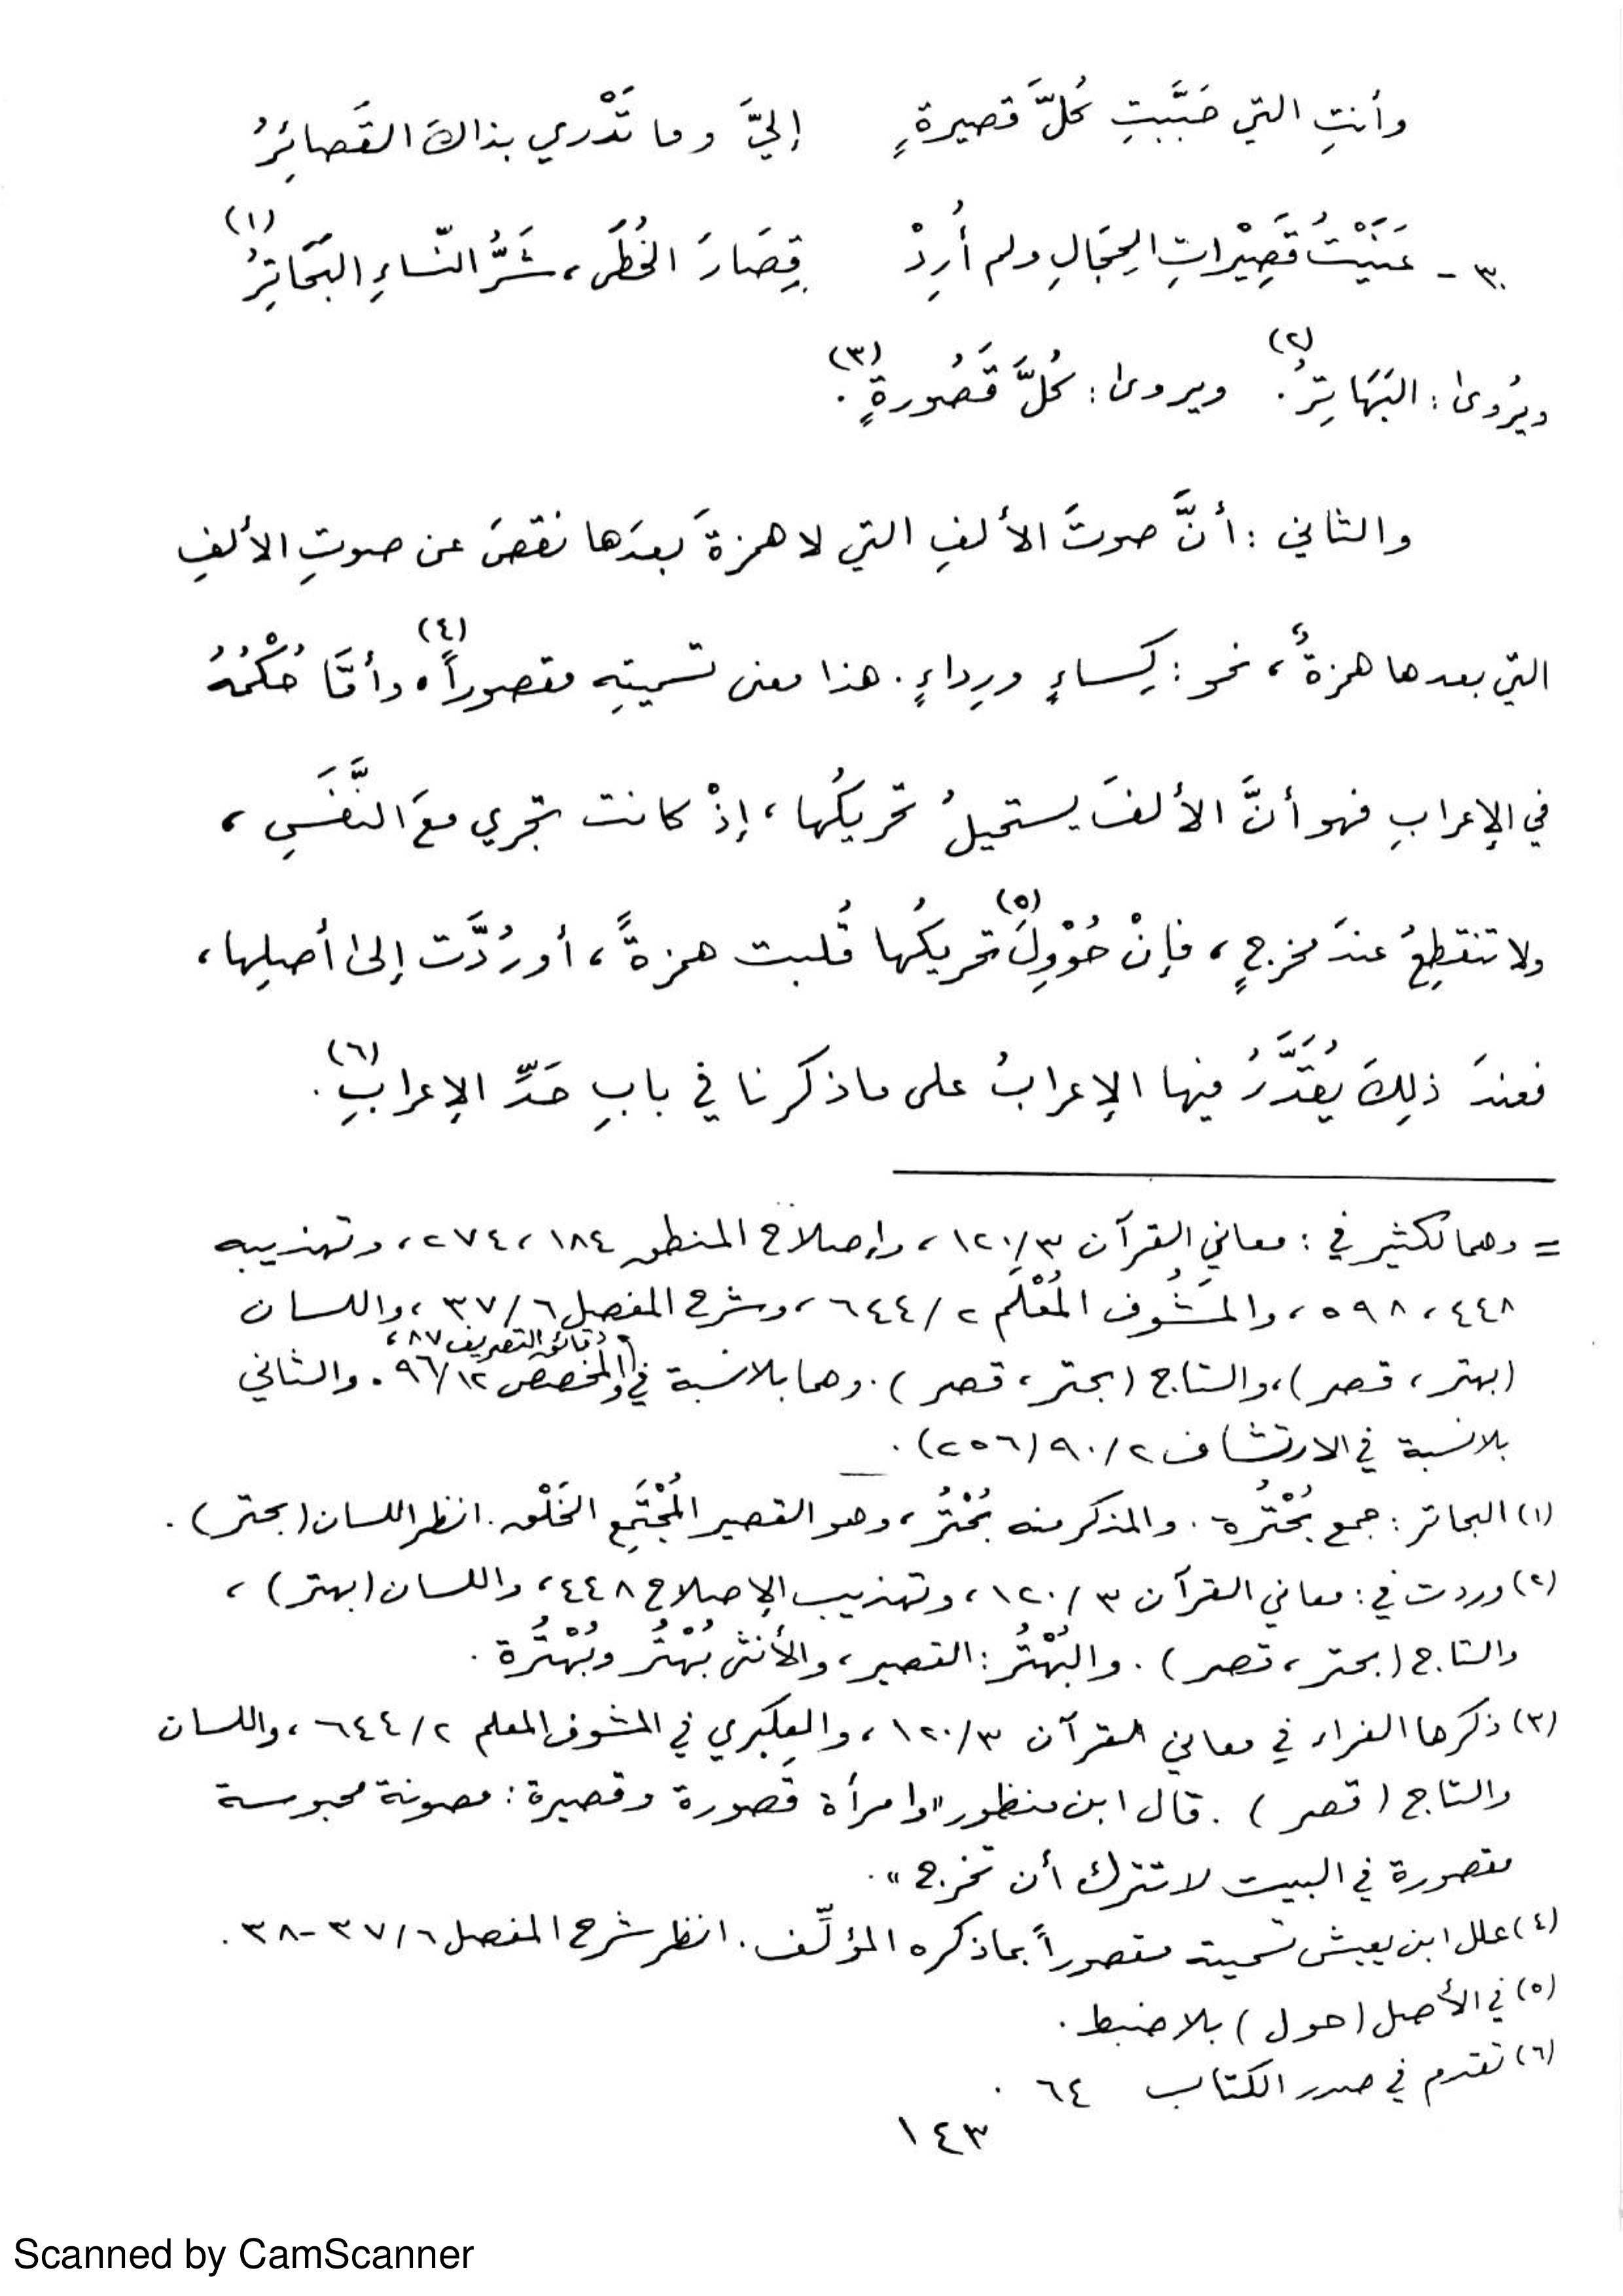 وأنتِ التي حَبَّبتِ كُلَّ قَصيرةٍ إليَّ وما تَدْري بذاكَ القَصائِرُ
٣٠ - عَنَيْتُ قَصِيْراتِ الحِجَالِ ولم أُرِدْ قِصَارَ الخُطَى، شَرُّ النّساءِ البَحَاتِرُ (١)
ويُروىٰ: البَهَاتِرُ (٢). ويروىٰ: كُلَّ قَصُورةٍ (٣).
والثاني: أنَّ صوتَ الألفِ التي لا همزةَ بعدَها نقصَ عن صوتِ الألفِ
التي بعدها همزةٌ، نحو: كِساءٍ ورِداءٍ. هذا معنى تسميتِه مقصوراً (٤). وأمَّا حُكْمُهُ
في الإعرابِ فهو أنَّ الألفَ يستحيلُ تحريكُها، إذْ كانت تجري معَ النَّفَسِ،
ولا تنقطِعُ عندَ مخرجٍ، فإنْ حُوْوِلَ (٥) تحريكُها قُلبت همزةً، أو رُدَّت إلىٰ أصلِها،
فعندَ ذلِكَ يُقَدَّرُ فيها الإعرابُ على ما ذكرنا في بابِ حَدِّ الإعرابِ (٦).
= وهما لكثير في: معاني القرآن ٣/١٢٠، وإصلاح المنطق ١٨٤، ٢٧٤، وتهذيبه
٤٤٨، ٥٩٨، والمَشُوف المُعْلَم ٢/٦٤٤، وشرح المفصل ٦/٣٧، واللسان
(بهتر، قصر)، والتاج (بحتر، قصر). وهما بلا نسبة في دقائق التصريف ٨٧، والمخصص ١٢/٩٦. والثاني
بلا نسبة في الارتشاف ٢/٩٠ (٢٥٦).
(١) البحاتر: جمع بُحْتُرة. والمذكر منه بُحْتُر، وهو القصير المُجْتَمِع الخَلْق. انظر اللسان (بحتر).
(٢) وردت في: معاني القرآن ٣/١٢٠، وتهذيب الإصلاح ٤٤٨، واللسان (بهتر)،
والتاج (بحتر، قصر). والبُهْتُر: القصير، والأنثى بُهْتُر وبُهْتُرة.
(٣) ذكرها الفراء في معاني القرآن ٣/١٢٠، والعكبري في المشوف المعلم ٢/٦٤٤، واللسان
والتاج (قصر). قال ابن منظور "وامرأة قَصورة وقصيرة: مصونة محبوسة
مقصورة في البيت لا تترك أن تخرج".
(٤) علل ابن يعيش تسميته مقصوراً بما ذكره المؤلِّف. انظر شرح المفصل ٦/٣٧-٣٨.
(٥) في الأصل (حول) بلا ضبط.
(٦) تقدم في صدر الكتاب ٦٤.
١٤٣
Scanned by CamScanner